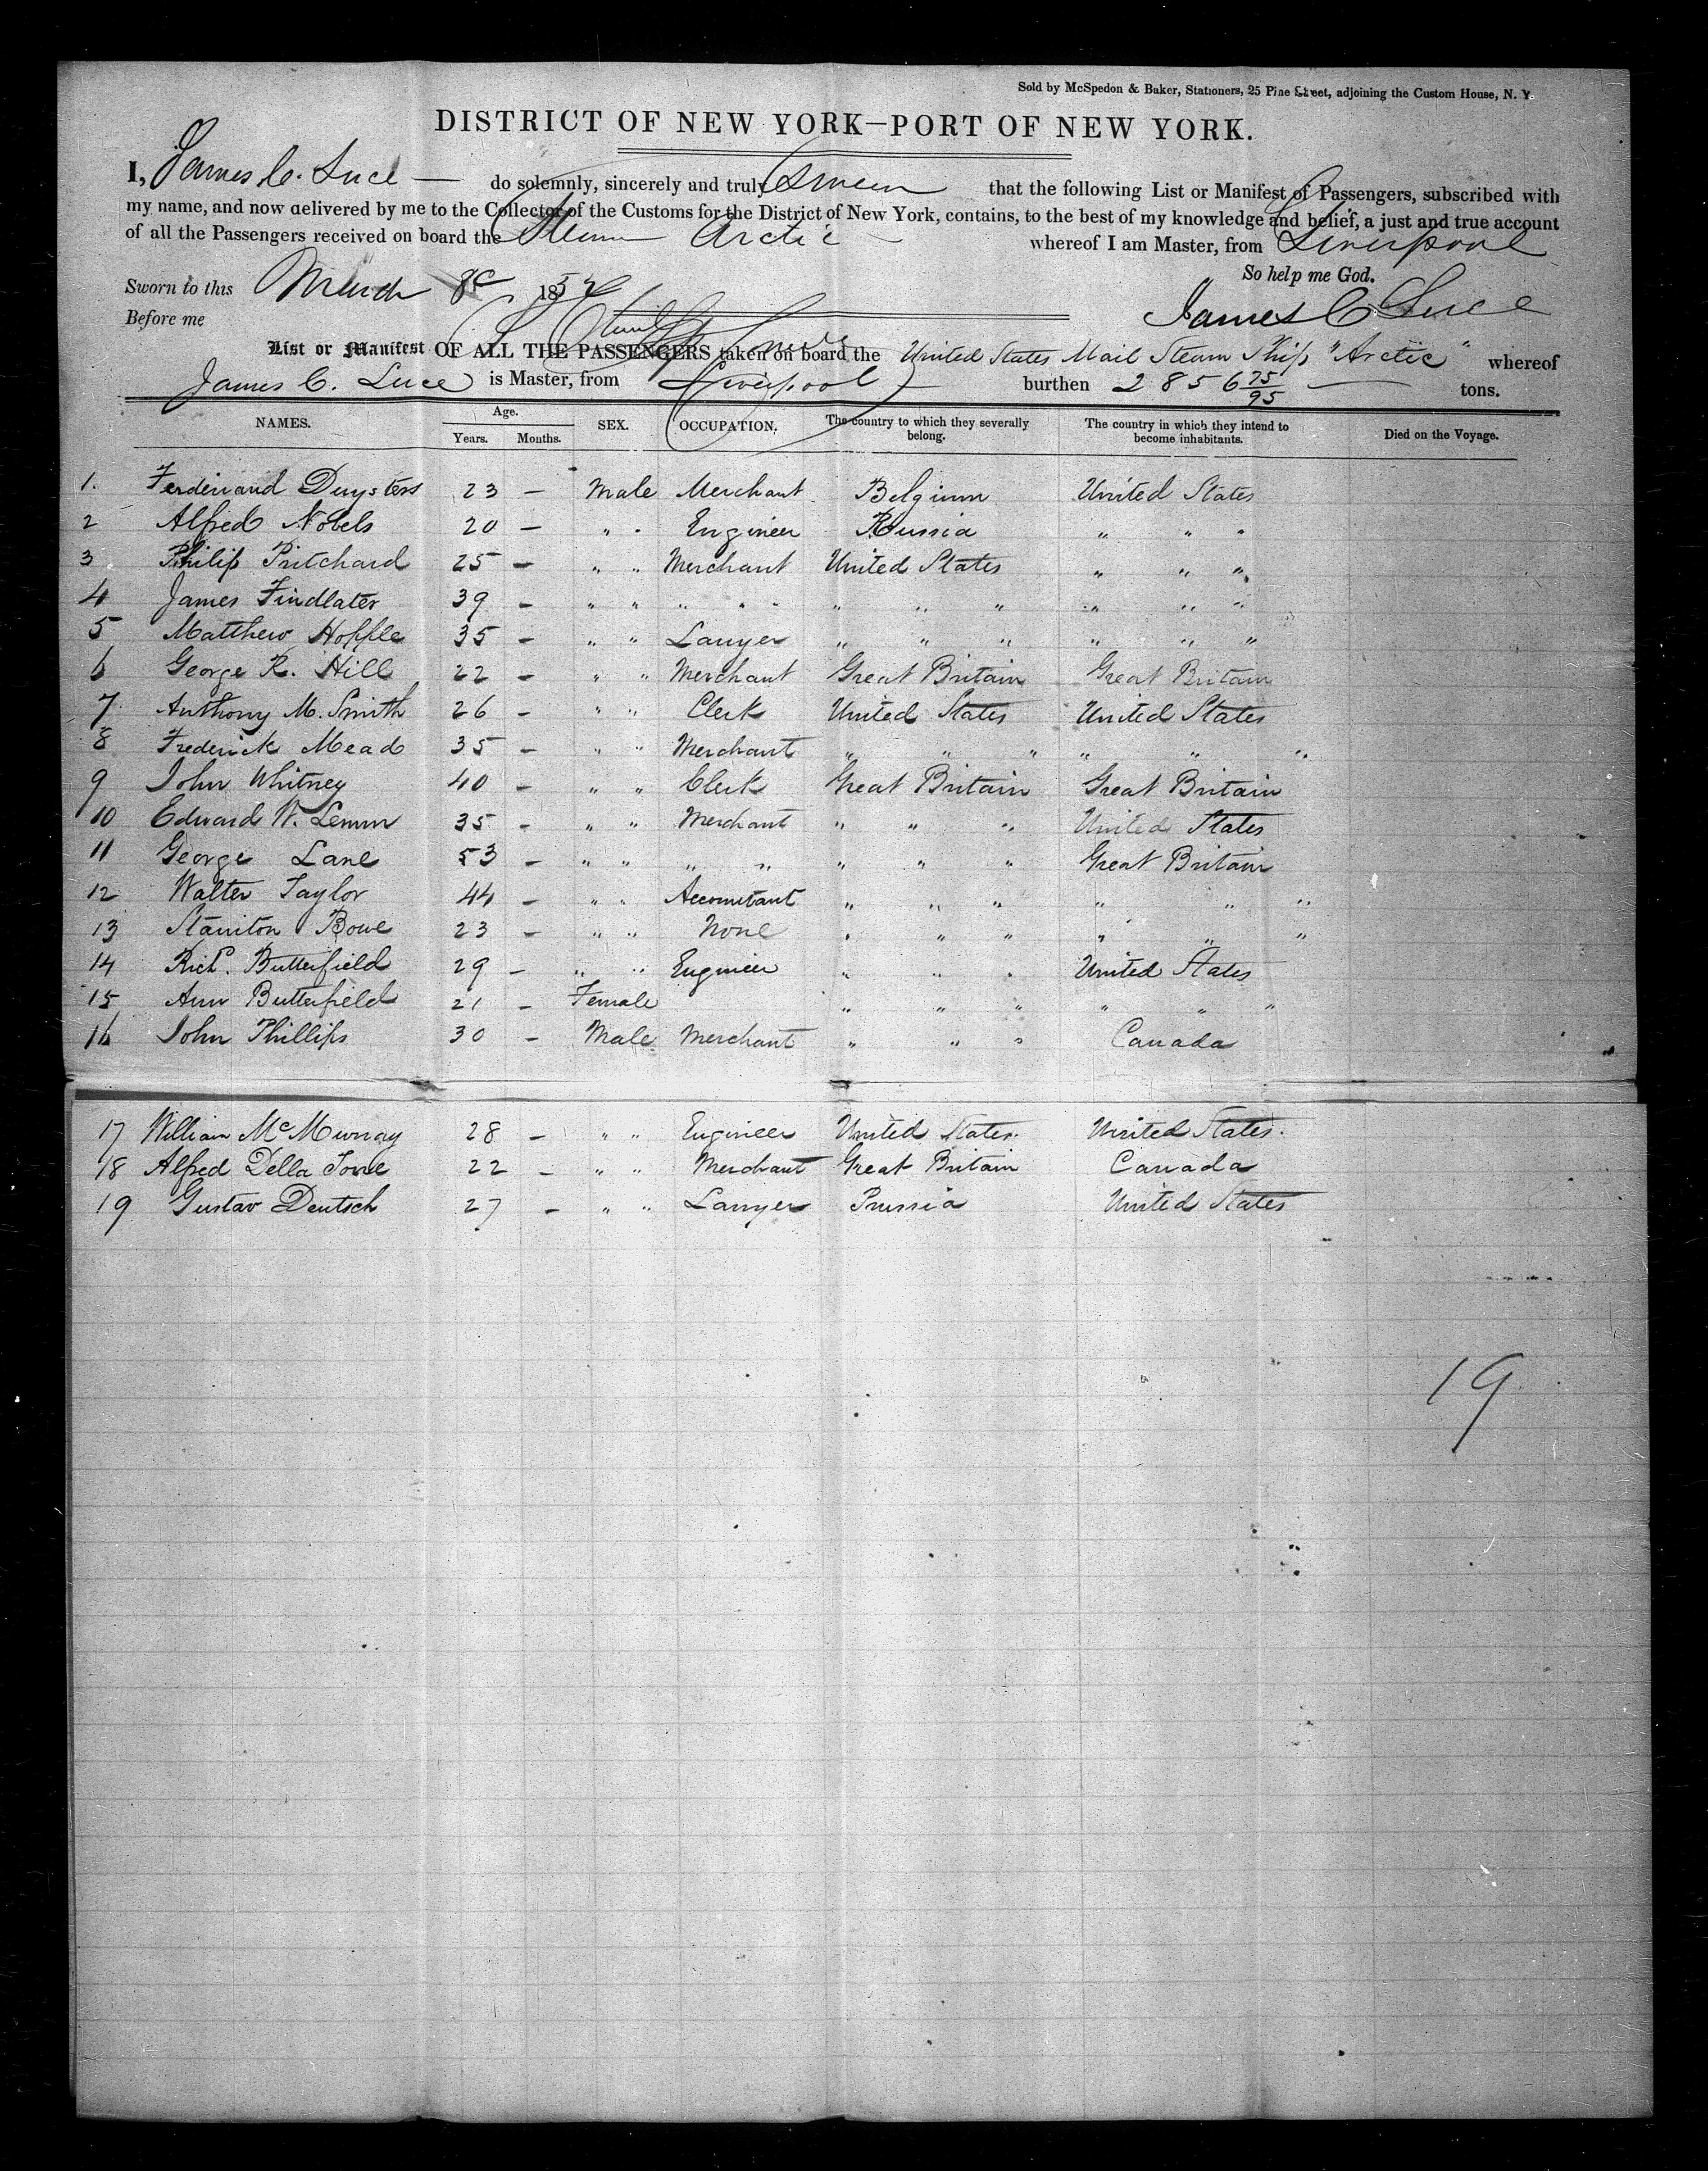 Sold by McSpedon & Baker, Stationers, 25 Pine Street, adjoining the Custom House, N. Y.
DISTRICT OF NEW YORK—PORT OF NEW YORK.
I, James C. Luce — do solemnly, sincerely and truly swear that the following List or Manifest of Passengers, subscribed with
my name, and now delivered by me to the Collector of the Customs for the District of New York, contains, to the best of my knowledge and belief, a just and true account
of all the Passengers received on board the Steamer Arctic whereof I am Master, from Liverpool
So help me God.
Sworn to this March 8 185
Before me
James C Luce
List or Manifest OF ALL THE PASSENGERS taken on board the United States Mail Steam Ship "Arctic" whereof
James C. Luce is Master, from Liverpool burthen 2856 75/95 tons.
NAMES. Age. Years. Months. SEX. OCCUPATION. The country to which they severally belong. The country in which they intend to become inhabitants. Died on the Voyage.
1. Ferdinand Duysters 23 — Male Merchant Belgium United States
2 Alfred Nobels 20 — " " Engineer Russia " " "
3 Philip Pritchard 25 — " " Merchant United States " " "
4 James Findlater 39 — " " " " " " " " " " "
5 Matthew Hopple 35 — " " Lawyer " " " " " "
6 George R. Hill 22 — " " Merchant Great Britain Great Britain
7 Anthony M. Smith 26 — " " Clerk United States United States
8 Frederick Mead 35 — " " Merchant " " " " " "
9 John Whitney 40 — " " Clerk Great Britain Great Britain
10 Edward W. Lemm 35 — " " Merchant " " " United States
11 George Lane 53 — " " " " " " " Great Britain
12 Walter Taylor 44 — " " Accountant " " " " " "
13 Staniton Bowe 23 — " " None " " " " " "
14 Richd. Butterfield 29 — " " Engineer " " " United States
15 Ann Butterfield 21 — Female " " " " " "
16 John Phillips 30 — Male Merchant " " " Canada
17 William McMurray 28 — " " Engineer United States. United States.
18 Alfred Della Torre 22 — " " Merchant Great Britain Canada
19 Gustav Deutsch 27 — " " Lawyer Prussia United States
19